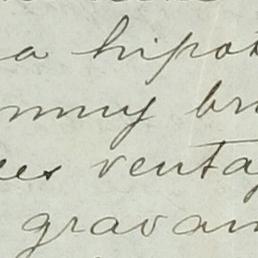 a hipot
muy br
es venta
gravam